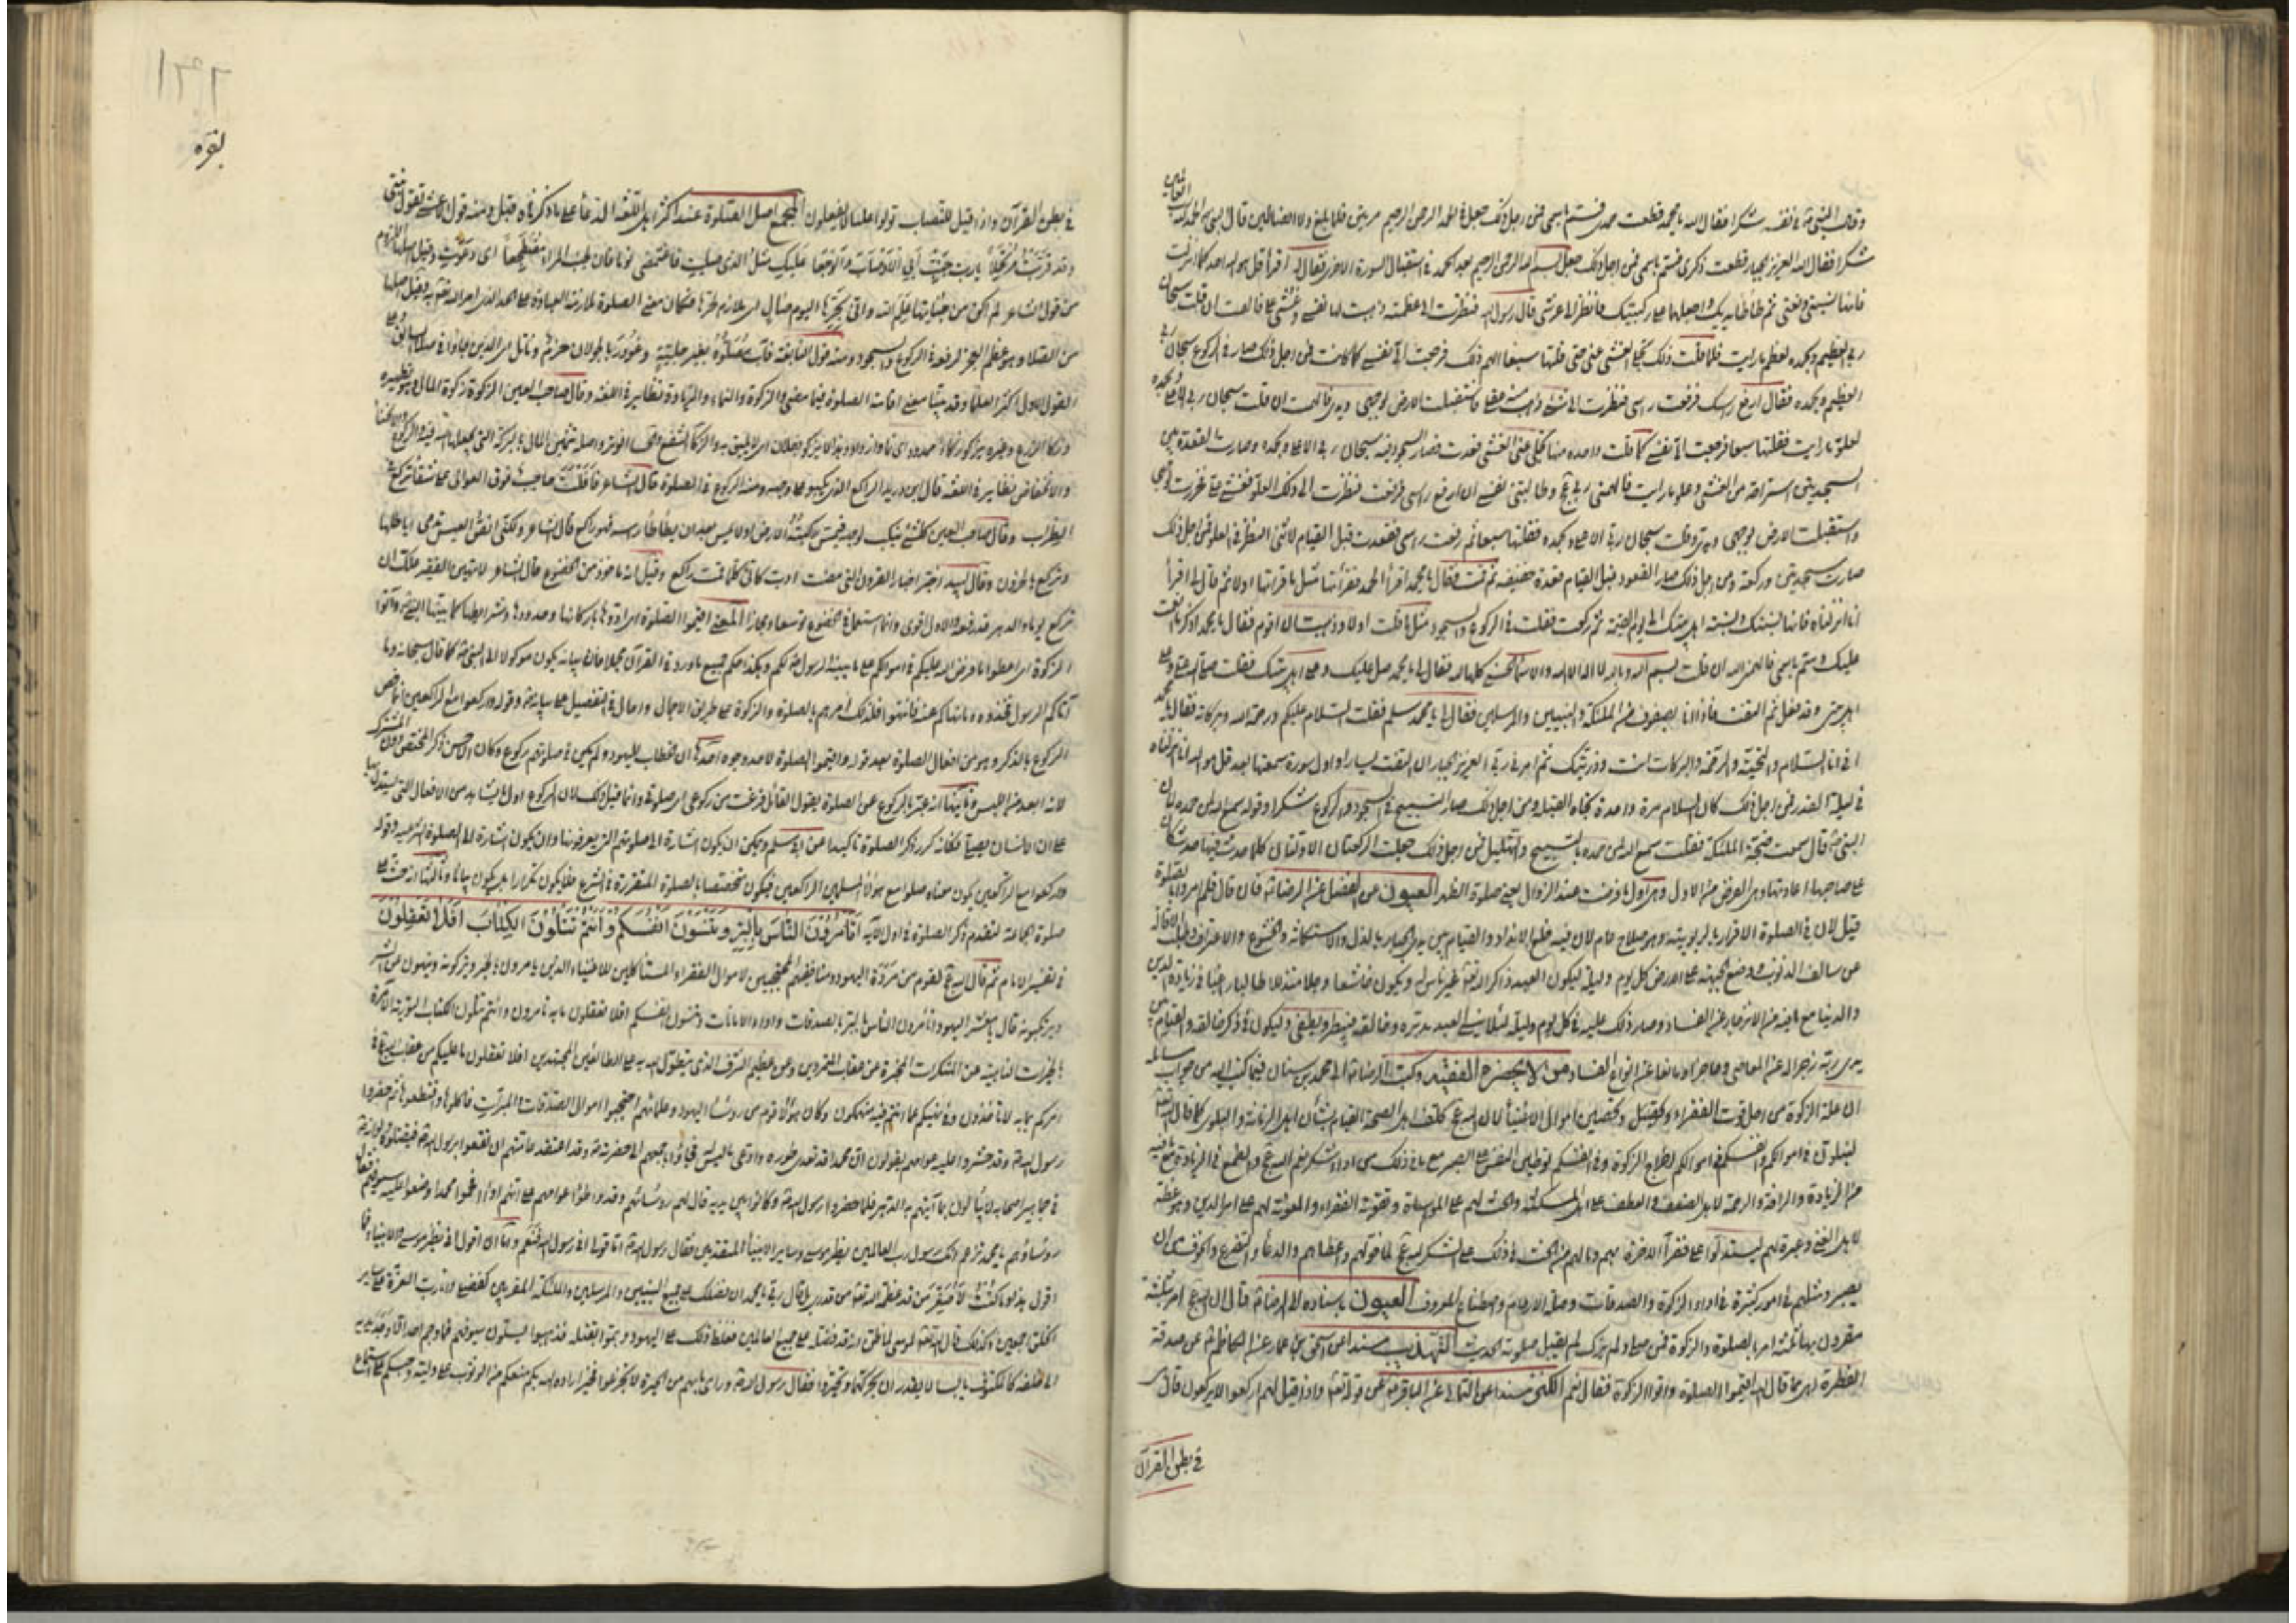 وقال النبي في نفسه شكرا فقال الله يا محمد قطعت حمدي فسم باسمي فمن اجل ذلك جعل في الحمد الرحمن الرحيم مرتين فلما بلغ ولا الضالين قال النبي الحمد لله رب العالمين
شكرا فقال الله العزيز الجبار قطعت ذكري فسم باسمي فمن اجل ذلك جعل بسم الله الرحمن الرحيم بعد الحمد في استقبال السورة الاخرى فقال له اقرأ قل هو الله احد كما انزلت
فانها نسبتي ونعتي ثم طأطأ يديك واجعلها على ركبتيك فانظر الى عرشي قال رسول الله فنظرت الى عظمة ذهبت لها نفسي وغشي علي فالهمت ان قلت سبحان
ربي العظيم وبحمده لعظم ما رايت فلما قلت ذلك تجلى الغشي عني حتى قلتها سبعا الهم ذلك فرجعت الى نفسي كما كانت فمن اجل ذلك صار في الركوع سبحان ربي
العظيم وبحمده فقال ارفع راسك فرفعت راسي فنظرت الى شيء ذهب منه عقلي فاستقبلت الارض بوجهي ويدي فالهمت ان قلت سبحان ربي الاعلى وبحمده
لعلو ما رايت فقلتها سبعا فرجعت الى نفسي كلما قلت واحدة منها تجلى عني الغشي فقعدت فصار السجود فيه سبحان ربي الاعلى وبحمده وصارت القعدة بين
السجدتين استراحة من الغشي وعلو ما رايت فالهمني ربي عج وطالبتني نفسي ان ارفع راسي فرفعت فنظرت الى ذلك العلو فغشي علي فخررت لوجهي
واستقبلت الارض بوجهي ويدي وقلت سبحان ربي الاعلى وبحمده فقلتها سبعا ثم رفعت راسي فقعدت قبل القيام لاثني النظر في العلو فمن اجل ذلك
صارت سجدتين وركعة ومن اجل ذلك صار القعود قبل القيام قعدة خفيفة ثم قمت فقال يا محمد اقرأ الحمد فقرأتها مثل ما قرأتها اولا ثم قال لي اقرأ
انا انزلناه فانها نسبتك ونسبة اهل بيتك الى يوم القيمة ثم ركعت فقلت في الركوع والسجود مثل ما قلت اولا وذهبت ان اقوم فقال يا محمد اذكر ما انعمت
عليك وسم باسمي فالهمني الله ان قلت بسم الله وبالله لا اله الا الله والاسماء الحسنى كلها لله فقال لي يا محمد صل عليك وعلى اهل بيتك فقلت صلى الله علي وعلى
اهل بيتي وقد فعل ثم التفت فاذا انا بصفوف من الملئكة والنبيين والمرسلين فقال لي يا محمد سلم فقلت السلام عليكم ورحمة الله وبركاته فقال يا محمد
اني انا السلام والتحية والرحمة والبركات انت وذريتك ثم امرني ربي العزيز الجبار ان لا التفت يسارا واول سورة سمعتها بعد قل هو الله انا انزلناه
في ليلة القدر فمن اجل ذلك كان السلام مرة واحدة تجاه القبلة ومن اجل ذلك صار التسبيح في السجود والركوع شكرا وقوله سمع الله لمن حمده لان
النبي ص قال سمعت ضجة الملئكة فقلت سمع الله لمن حمده بالتسبيح والتهليل فمن اجل ذلك جعلت الركعتان الاوليان كلما حدث فيهما حدث كان
على صاحبهما اعادتها وهي الفرض الاول وهي اول ما فرضت عند الزوال يعني صلوة الظهر العيون عن الفضل عن الرضا ع فان قال فلم امروا بالصلوة
قيل لان في الصلوة الاقرار بالربوبية وهو صلاح عام لان فيه خلع الانداد والقيام بين يدي الجبار بالذل والاستكانة والخضوع والاعتراف وطلب الاقالة
من سالف الذنوب ووضع الجبهة على الارض كل يوم وليلة ليكون العبد ذاكرا لله تعالى غير ناس له ويكون خاشعا وجلا متذللا طالبا راغبا في زيادة الدين
والدنيا مع ما فيه من الانزجار عن الفساد وصار ذلك عليه في كل يوم وليلة لئلا ينسى العبد مدبره وخالقه فيبطر ويطغى وليكون في ذكر خالقه والقيام بين
يدي ربه زجرا له عن المعاصي وحاجزا ومانعا عن انواع الفساد من لا يحضره الفقيه وكتب الرضا ع الى محمد بن سنان فيما كتب اليه من جواب مسائله
ان علة الزكوة من اجل قوت الفقراء وتحصين اموال الاغنياء لان الله عج كلف اهل الصحة القيام بشأن اهل الزمانة والبلوى كما قال الله تعالى
لتبلون في اموالكم وانفسكم في اموالكم اخراج الزكوة وفي انفسكم توطين النفس على الصبر مع ما في ذلك من اداء شكر نعم الله عج والطمع في الزيادة مع ما فيه
من الزيادة والرافة والرحمة لاهل الضعف والعطف على اهل المسكنة والحث لهم على المواساة وتقوية الفقراء والمعونة لهم على امر الدين وهو عظة
لاهل الغنى وعبرة لهم ليستدلوا على فقراء الآخرة بهم وما لهم من الحث في ذلك على الشكر لله عج لما خولهم واعطاهم والدعا والتضرع والخوف من ان
يصيروا مثلهم في امور كثيرة في اداء الزكوة والصدقات وصلة الارحام واصطناع المعروف العيون باسناده الى الرضا ع قال ان الله عج امر بثلثة
مقرون بها ثلثة امر بالصلوة والزكوة فمن صلى ولم يزك لم يقبل صلوته الحديث التهذيب مسندا عن اسحق بن عمار عن الكاظم ع عن صدقة
الفطرة اهي مما قال الله اقيموا الصلوة واتوا الزكوة فقال نعم الكنز مسندا عن الثمالي عن الباقر ع عن قوله تعالى واذا قيل لهم اركعوا لا يركعون قال هي
في بطن القرآن
بقره
في بطن القرآن واذا قيل للنصاب تولوا عليا لا يفعلون المجمع اصل الصلوة عند اكثر اهل اللغة الدعا على ما ذكرناه قبل ومنه قول الاعشى تقول بنتي
وقد قربت مرتحلا يا رب جنب أبي الاوصاب والوجعا عليك مثل الذي صليت فاغتمضي نوما فان لجنب المرء مضطجعا اي دعوت وقيل اصلها اللزوم
من قول الشاعر لم اكن من جناتها علم الله واني بحرها اليوم صالي اي ملازم لحرها فكان معنى الصلوة ملازمة العبادة على الحد الذي امر الله تعالى به وقيل اصلها
من الصلا وهو عظم العجز لرفعه في الركوع والسجود ومنه قول النابغة فآب مصلوه بغير جلية وغودر بالجولان حزم ونائل اي الذين جاؤا في صلا السابق وعلى
القول الاول اكثر العلما وقد بينا معنى اقامة الصلوة فيما مضى والزكوة والنماء والزيادة نظاير في اللغة وقال صاحب العين الزكوة زكوة المال وهو تطهيره
وزكا الزرع وغيره يزكو زكاء ممدود اي نما وازداد وهذا لا يزكو بفلان اي لا يليق به والزكا الشفع والخسا الوتر واصله تثمير المال بالبركة التي يجعلها الله فيه والركوع والانحناء
والانخفاض نظاير في اللغة قال ابن دريد الراكع الذي يكبو على وجهه ومنه الركوع في الصلوة قال الشاعر فافلت حاجب فوق العوالي على شقاء تركع في
الظراب وقال صاحب العين كل شيء ينكب لوجهه فيمس ركبته الارض او لا يمس بعد ان يطأطأ رأسه فهو راكع قال الشاعر ولكني انص العيس تدمي اياطلها
وتركع بالحزون وقال لبيد اخبر اخبار القرون التي مضت ادب كاني كلما قمت راكع وقيل انه ماخوذ من الخضوع قال الشاعر لا تهين الفقير علك ان
تركع يوما والدهر قد رفعه والاول اقوى وانما يستعمل في الخضوع توسعا ومجازا المعنى اقيموا الصلوة اي ادوها باركانها وحدودها وشرايطها كما بينها النبي ص وآتوا
الزكوة اي اعطوا ما فرض الله عليكم في اموالكم على ما بينه الرسول ص لكم وهكذا حكم جميع ما ورد في القرآن مجملا فان بيانه يكون موكولا الى النبي ص كما قال سبحانه وما
آتاكم الرسول فخذوه وما نهاكم عنه فانتهوا فلذلك امرهم بالصلوة والزكوة على طريق الاجمال واحال في التفصيل على بيانه ص وقوله واركعوا مع الراكعين انما خص
الركوع بالذكر وهو من افعال الصلوة بعد قوله واقيموا الصلوة لاحد وجوه احدها ان الخطاب لليهود ولم يكن في صلوتهم ركوع وكان الاحسن ذكر المختص دون المشترك
لانه ابعد من اللبس وثانيها انه عبر بالركوع عن الصلوة يقول القائل فرغت من ركوعي اي صلوتي وانما قيل ذلك لان الركوع اول ما يشاهد من الافعال التي يستدل بها
على ان الانسان يصلي فكانه كرر ذكر الصلوة تاكيدا عن ابي مسلم ويمكن ان يكون اشارة الى صلوتهم التي يعرفونها وان يكون اشارة الى الصلوة الشرعية وقوله
واركعوا مع الراكعين يكون معناه صلوا مع هؤلاء المسلمين الراكعين فيكون متخصصا بالصلوة المتقررة في الشرع فلا يكون تكرارا بل يكون بيانا وثالثها انه حث على
صلوة الجماعة لتقدم ذكر الصلوة في اول الآية أَتَأْمُرُونَ النَّاسَ بِالْبِرِّ وَتَنْسَوْنَ أَنْفُسَكُمْ وَأَنْتُمْ تَتْلُونَ الكِتَابَ أَفَلَا تَعْقِلُونَ
في تفسير الامام ثم قال الله عج لقوم من مردة اليهود ومنافقيهم المحتجبين لاموال الفقراء المستأكلين للاغنياء الذين يامرون بالخير ويتركونه وينهون عن الشر
ويرتكبونه قال يا معشر اليهود أتأمرون الناس بالبر بالصدقات واداء الامانات وتنسون انفسكم افلا تعقلون ما به تأمرون وانتم تتلون الكتاب التورية الآمرة
بالخيرات الناهية عن المنكرات المخبرة عن عقاب المتمردين وعن عظيم الشرف الذي يتطول الله به على الطائعين المجتهدين افلا تعقلون ما عليكم من عقاب الله عج في
امركم بما به لا تاخذون وفي نهيكم عما انتم فيه منهمكون وكان هؤلاء قوم من رؤساء اليهود وعلمائهم احتجبوا اموال الصدقات والمبرات فاكلوها واقتطعوها ثم حضروا
رسول الله ص وقد حشروا عليه عوامهم يقولون ان محمدا قد تعدى طوره وادعى ما ليس له فجاؤا باجمعهم الى حضرته ص وقد اعتقد عامتهم ان يقعوا برسول الله ص فيقتلوه ولو انه
في جماهير اصحابه لا يبالون بما آتيهم به الدهر فلما حضروا رسول الله ص وكانوا بين يديه قال لهم رؤسائهم وقد واطؤا عوامهم على انهم اذا افحموا محمدا وضعوا عليه سيوفهم فقال
رؤساؤهم يا محمد تزعم انك رسول رب العالمين نظير موسى وساير الانبيآ المتقدمين فقال رسول الله ص اما قولي اني رسول الله فنعم واما ان اقول اني نظير موسى والانبياء فما
اقول هذا وما كنت لاصغر من قد عظمه الله تعالى من قدري بل قال ربي يا محمد ان فضلك على جميع النبيين والمرسلين والملئكة المقربين كفضلي وانا رب العزة على ساير
الخلق اجمعين وكذلك قال الله تعالى لموسى لما ظن انه قد فضله على جميع العالمين فغلظ ذلك على اليهود وهموا بقتله فذهبوا يسلون سيوفهم فما منهم احد الا وجد يديه
الى خلفه كالمكتوف يابسا لا يقدر ان يحركهما وتحيروا فقال رسول الله ص وراى ما بهم من الحيرة لا تجزعوا فخير اراده الله بكم منعكم من الوثوب على وليه وحبسكم على استماع